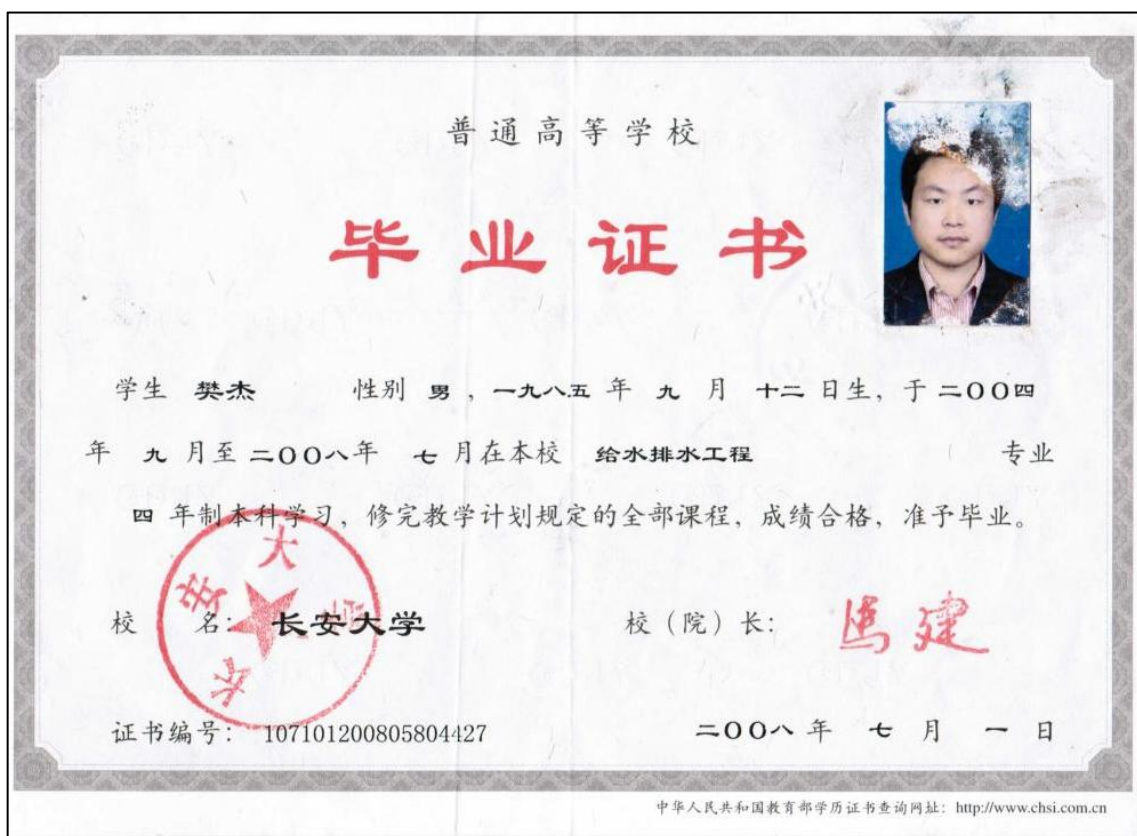 普通高等学校
毕业证书
学生 樊杰 性别 男，一九八五 年 九 月 十二 日生，于 二〇〇四
年 九 月至 二〇〇八年 七 月在本校 给水排水工程 专业
四 年制本科学习，修完教学计划规定的全部课程，成绩合格，准予毕业。
长安大学
校 名：长安大学 校（院）长：马建
证书编号：107101200805804427 二〇〇八 年 七 月 一 日
中华人民共和国教育部学历证书查询网址：http://www.chsi.com.cn